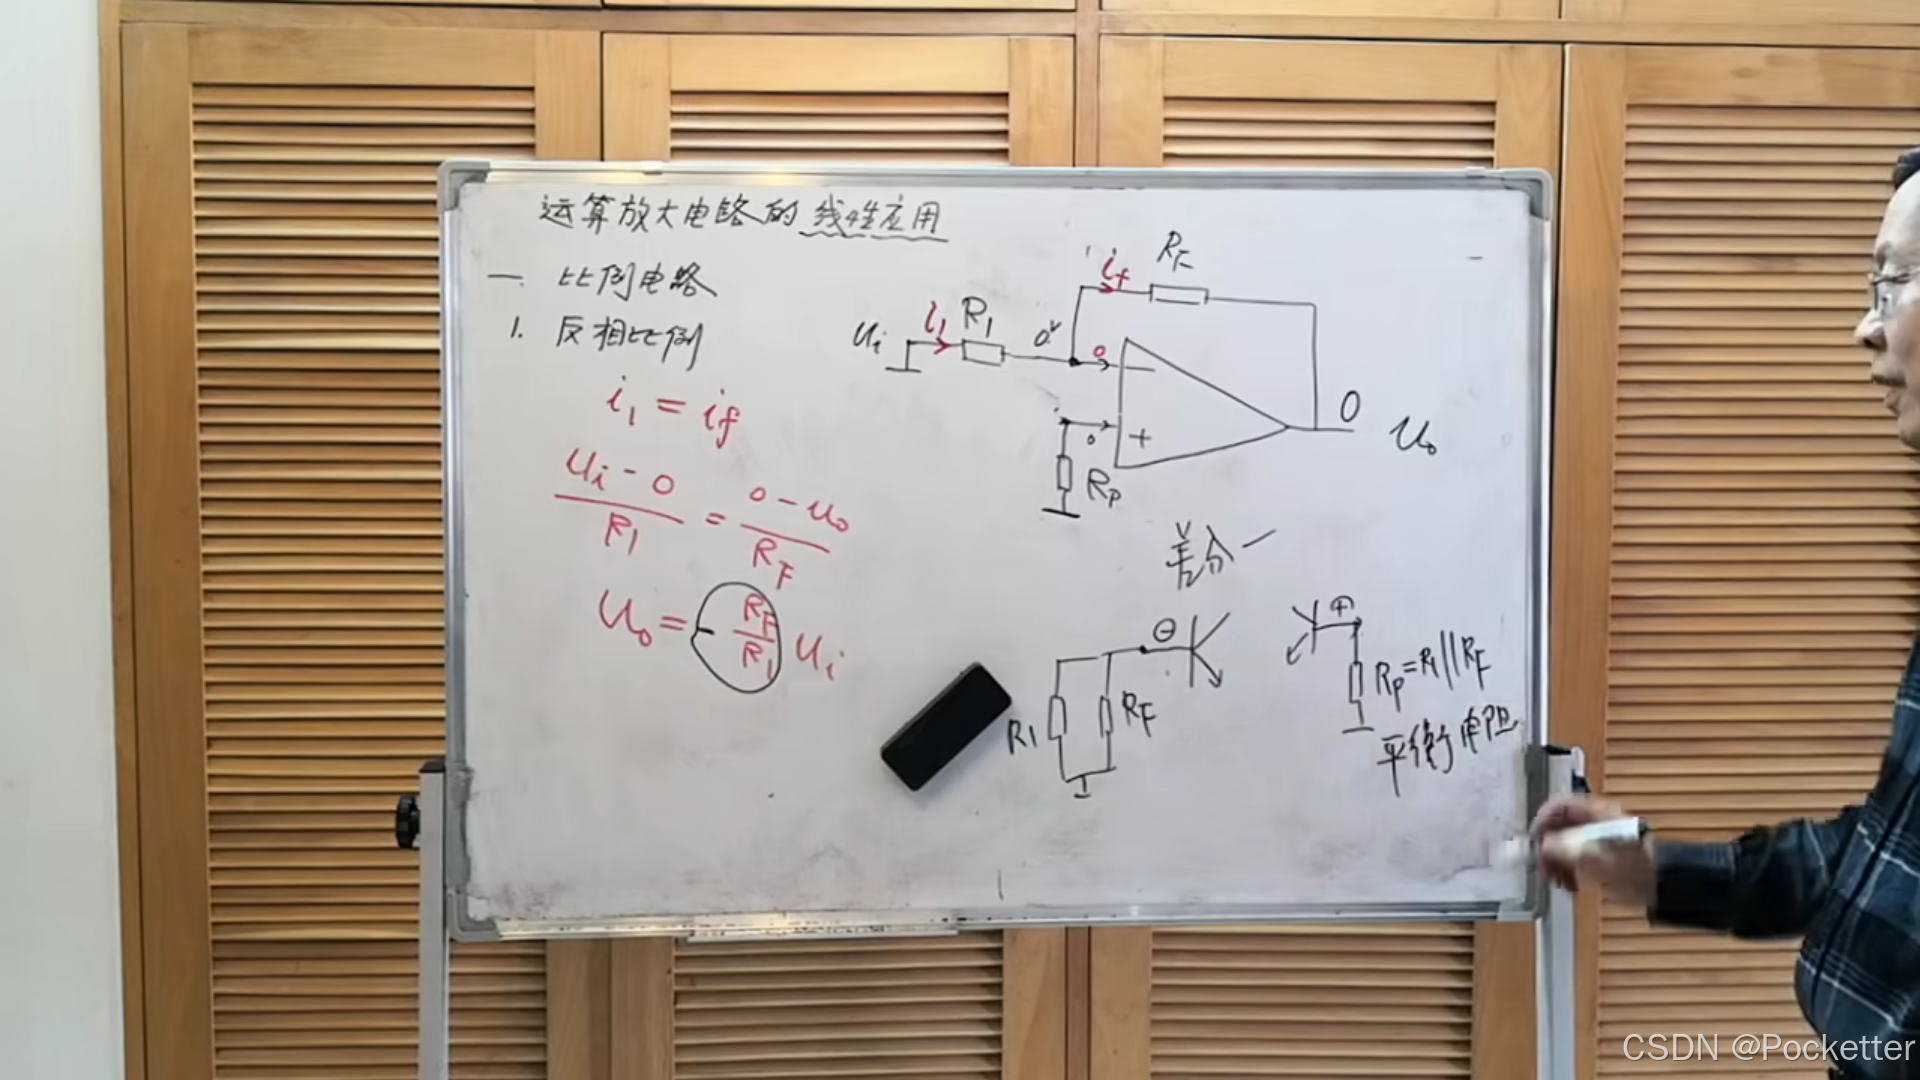 运算放大电路的线性应用
一. 比例电路
1. 反相比例
i₁ = if
(ui - 0)/R1 = (0 - uo)/RF
Uo = - RF/R1 Ui
if RF
Ui i₁ R1 0V 0 -
0 + 0 Uo
RP
差分
⊖ ⊕
R1 RF
RP=R1||RF
平衡电阻
CSDN @Pocketter